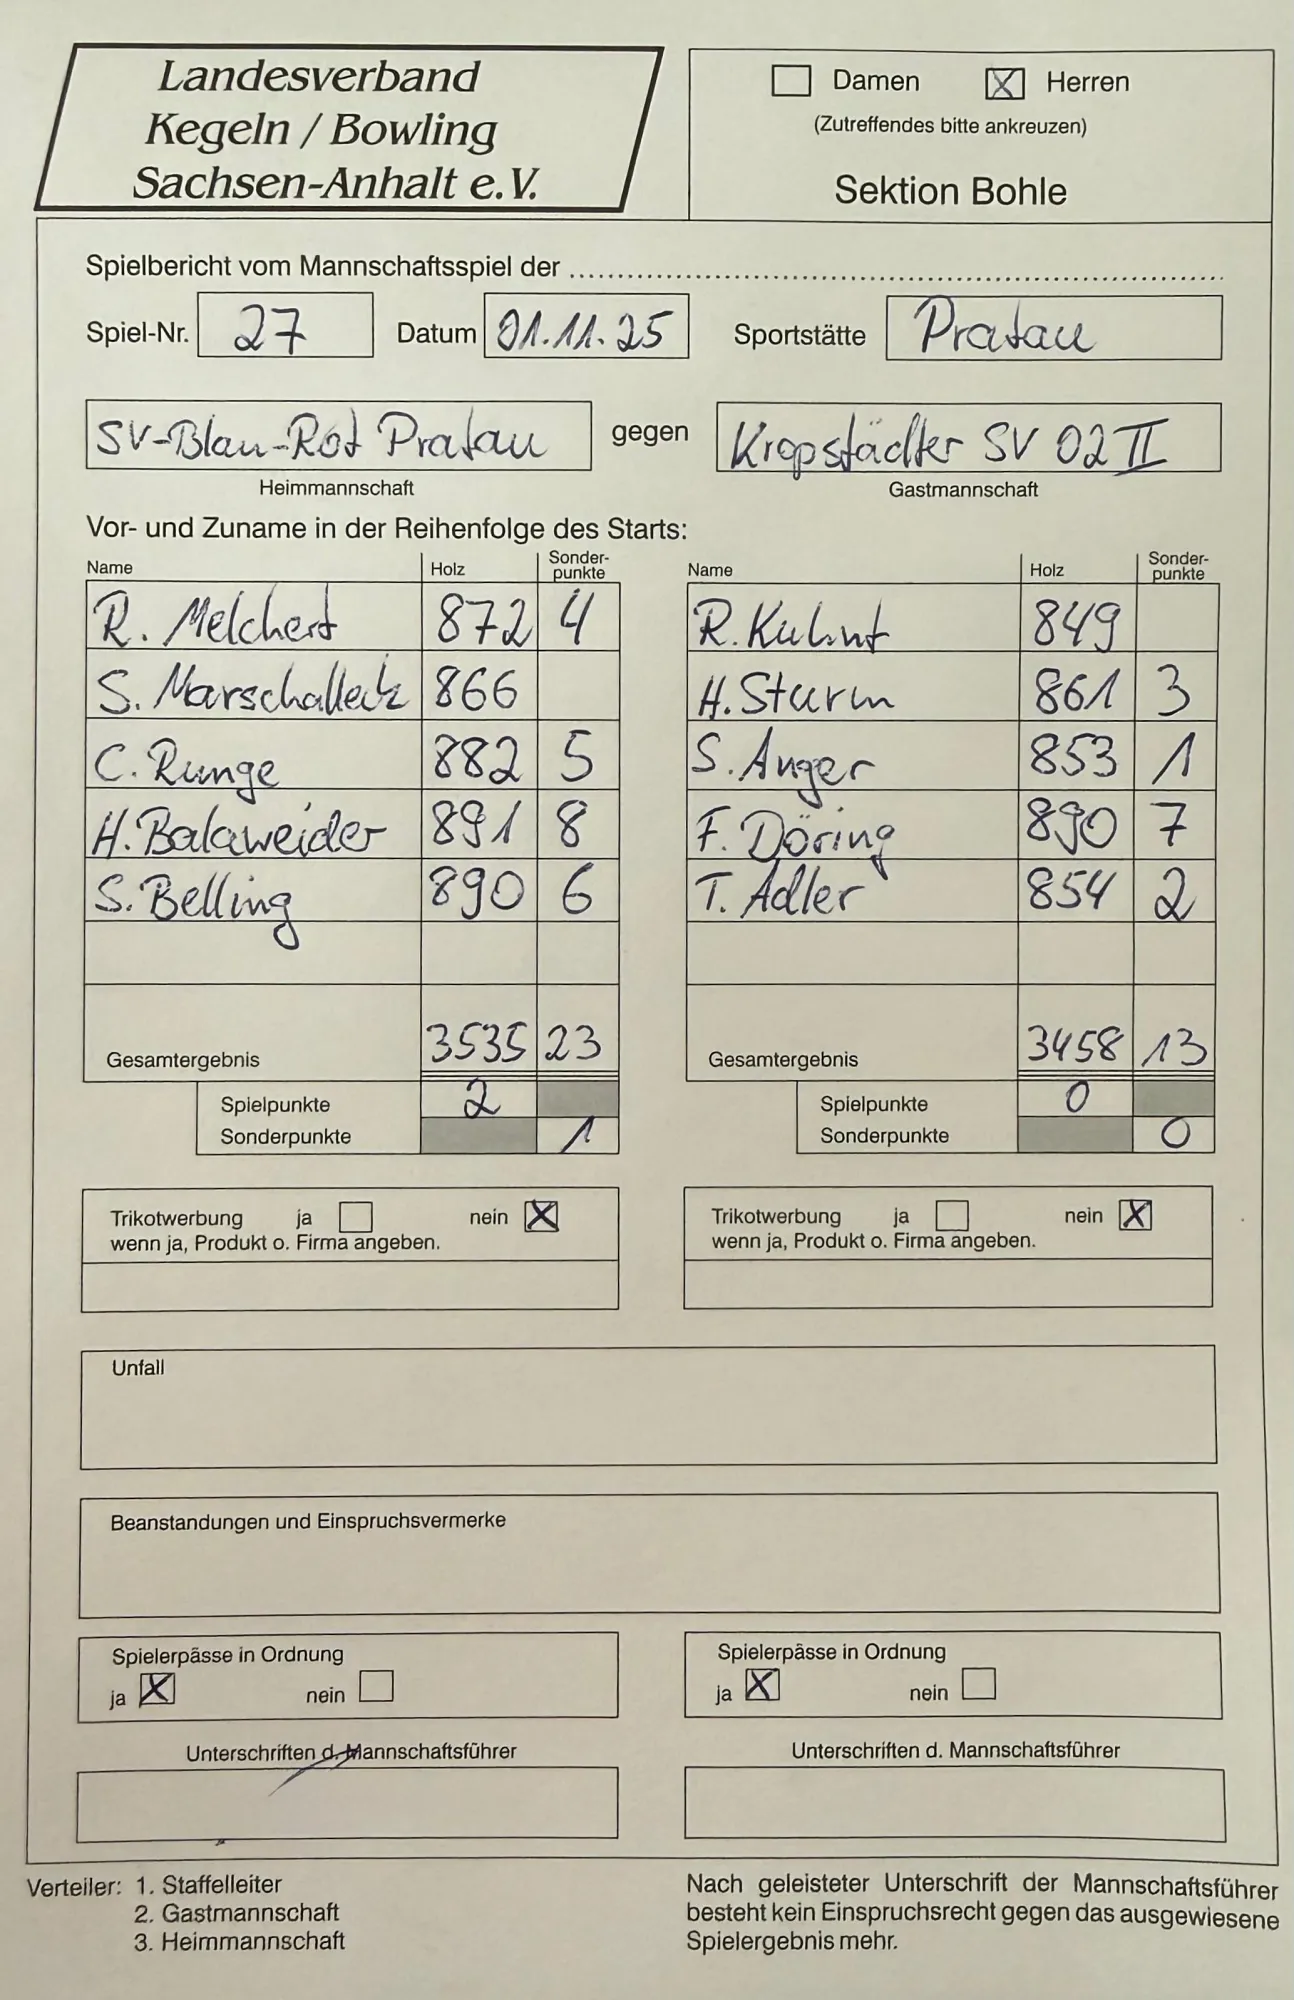 Landesverband
Kegeln / Bowling
Sachsen-Anhalt e.V.
Damen Herren
(Zutreffendes bitte ankreuzen)
Sektion Bohle
Spielbericht vom Mannschaftsspiel der
Spiel-Nr. 27 Datum 01.11.25 Sportstätte Pratau
SV-Blau-Rot Pratau gegen Kropstädter SV 02 II
Heimmannschaft Gastmannschaft
Vor- und Zuname in der Reihenfolge des Starts:
Name Holz Sonder-punkte Name Holz Sonder-punkte
R. Melchert 872 4 R. Kuhnt 849
S. Marschalleck 866 H. Sturm 861 3
C. Runge 882 5 S. Anger 853 1
H. Balaweider 891 8 F. Döring 890 7
S. Belling 890 6 T. Adler 854 2
Gesamtergebnis 3535 23 Gesamtergebnis 3458 13
Spielpunkte 2 Spielpunkte 0
Sonderpunkte 1 Sonderpunkte 0
Trikotwerbung ja nein X Trikotwerbung ja nein X
wenn ja, Produkt o. Firma angeben. wenn ja, Produkt o. Firma angeben.
Unfall
Beanstandungen und Einspruchsvermerke
Spielerpässe in Ordnung Spielerpässe in Ordnung
ja X nein ja X nein
Unterschriften d. Mannschaftsführer Unterschriften d. Mannschaftsführer
Verteiler: 1. Staffelleiter
2. Gastmannschaft
3. Heimmannschaft
Nach geleisteter Unterschrift der Mannschaftsführer
besteht kein Einspruchsrecht gegen das ausgewiesene
Spielergebnis mehr.